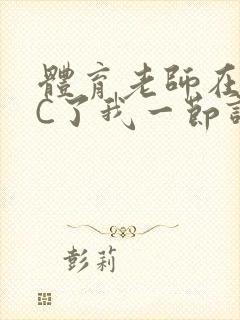 體育老師在
C了我一節
彭莉